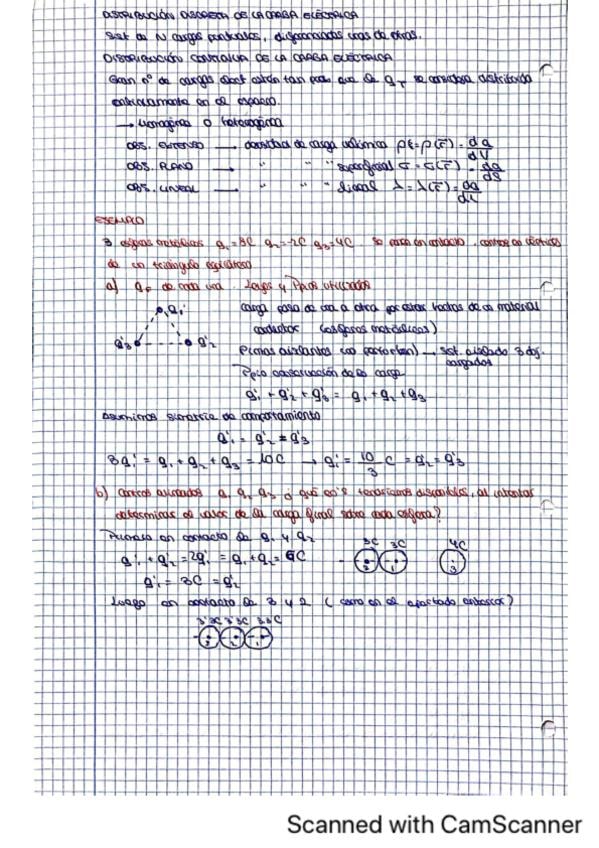 DISTRIBUCIÓN DISCRETA DE LA CARGA ELÉCTRICA
Sist de N cargas puntuales, diferenciadas unas de otras.
DISTRIBUCIÓN CONTINUA DE LA CARGA ELÉCTRICA
Gran nº de cargas elect están tan que la q_T se considera distribuida
en el espacio.
→ homogénea o heterogénea
OBJ. EXTENSO → densidad de carga volúmica ρ = ρ(r̄) = dq/dV
OBJ. PLANO → " " " superficial σ = σ(r̄) = dq/dS
OBJ. LINEAL → " " " lineal λ = λ(r̄) = dq/dL
EJEMPLO
3 esferas metálicas q₁=8C q₂=-2C q₃=4C. Se ponen en contacto, centros en vértices
de un triángulo equilátero
a) q_F de cada una. Leyes y Ppios utilizados
q'₁
q'₃ q'₂
carga pasa de una a otra por estar hechas de un material
conductor (esferas metálicas)
Pinzas aislantes (no perturban) → Sist. aislado 3 obj. cargados
Ppio conservación de la carga
q'₁ + q'₂ + q'₃ = q₁ + q₂ + q₃
Asumimos simetría de comportamiento
q'₁ = q'₂ = q'₃
3q'₁ = q₁ + q₂ + q₃ = 10C → q'₁ = 10/3 C = q'₂ = q'₃
b) Centros alineados q₁ q₂ q₃ ¿ qué tendríamos disponibles, al intentar
determinar el valor de la carga final sobre cada esfera?
Primero en contacto la q₁ y q₂
q'₁ + q'₂ = 2q'₁ = q₁ + q₂ = 6C
q'₁ = 3C = q'₂
3C 3C 4C
2 1 3
Luego en contacto la 3 y 2 ( como en el apartado entonces?